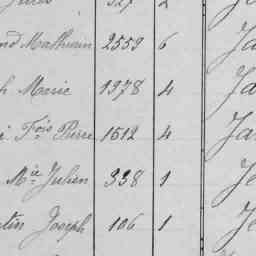 Mathurin 2559 6 Ja
Marie 1378 4 Ja
Fois Pierre 1512 4 Ja
Mie Julien 338 1 Je
Joseph 106 1 Je